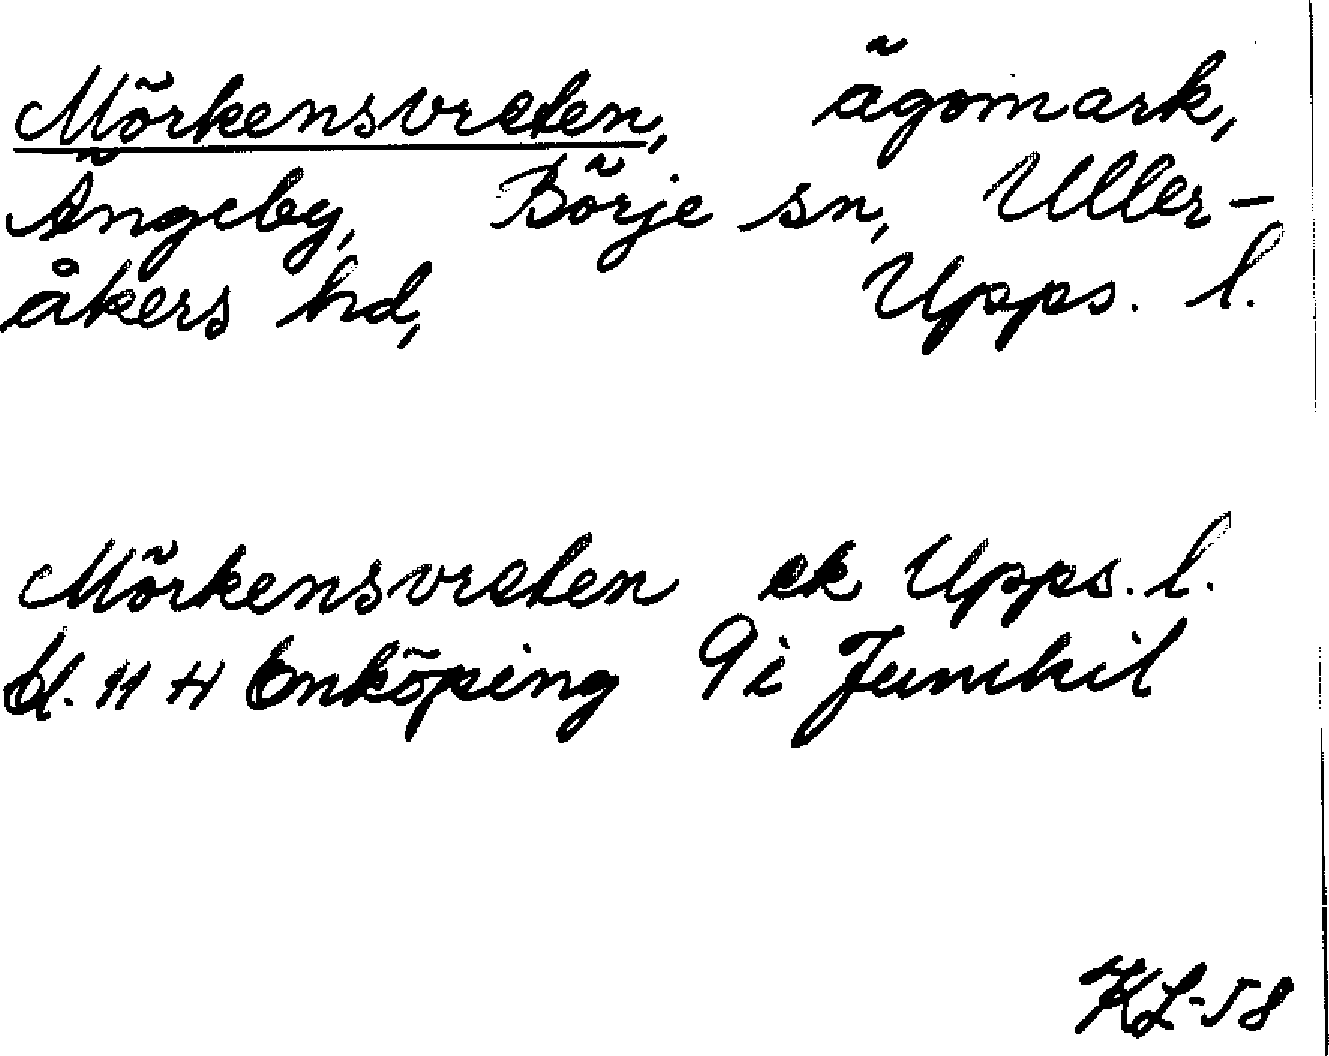 Mörkensvreten, ägomark,
Ängeby, Börje sn, Uller-
åkers hd, Upps. l.
Mörkensvreten ek Upps. l.
bl. 11 H Enköping 9 i Jumkil
KL-58